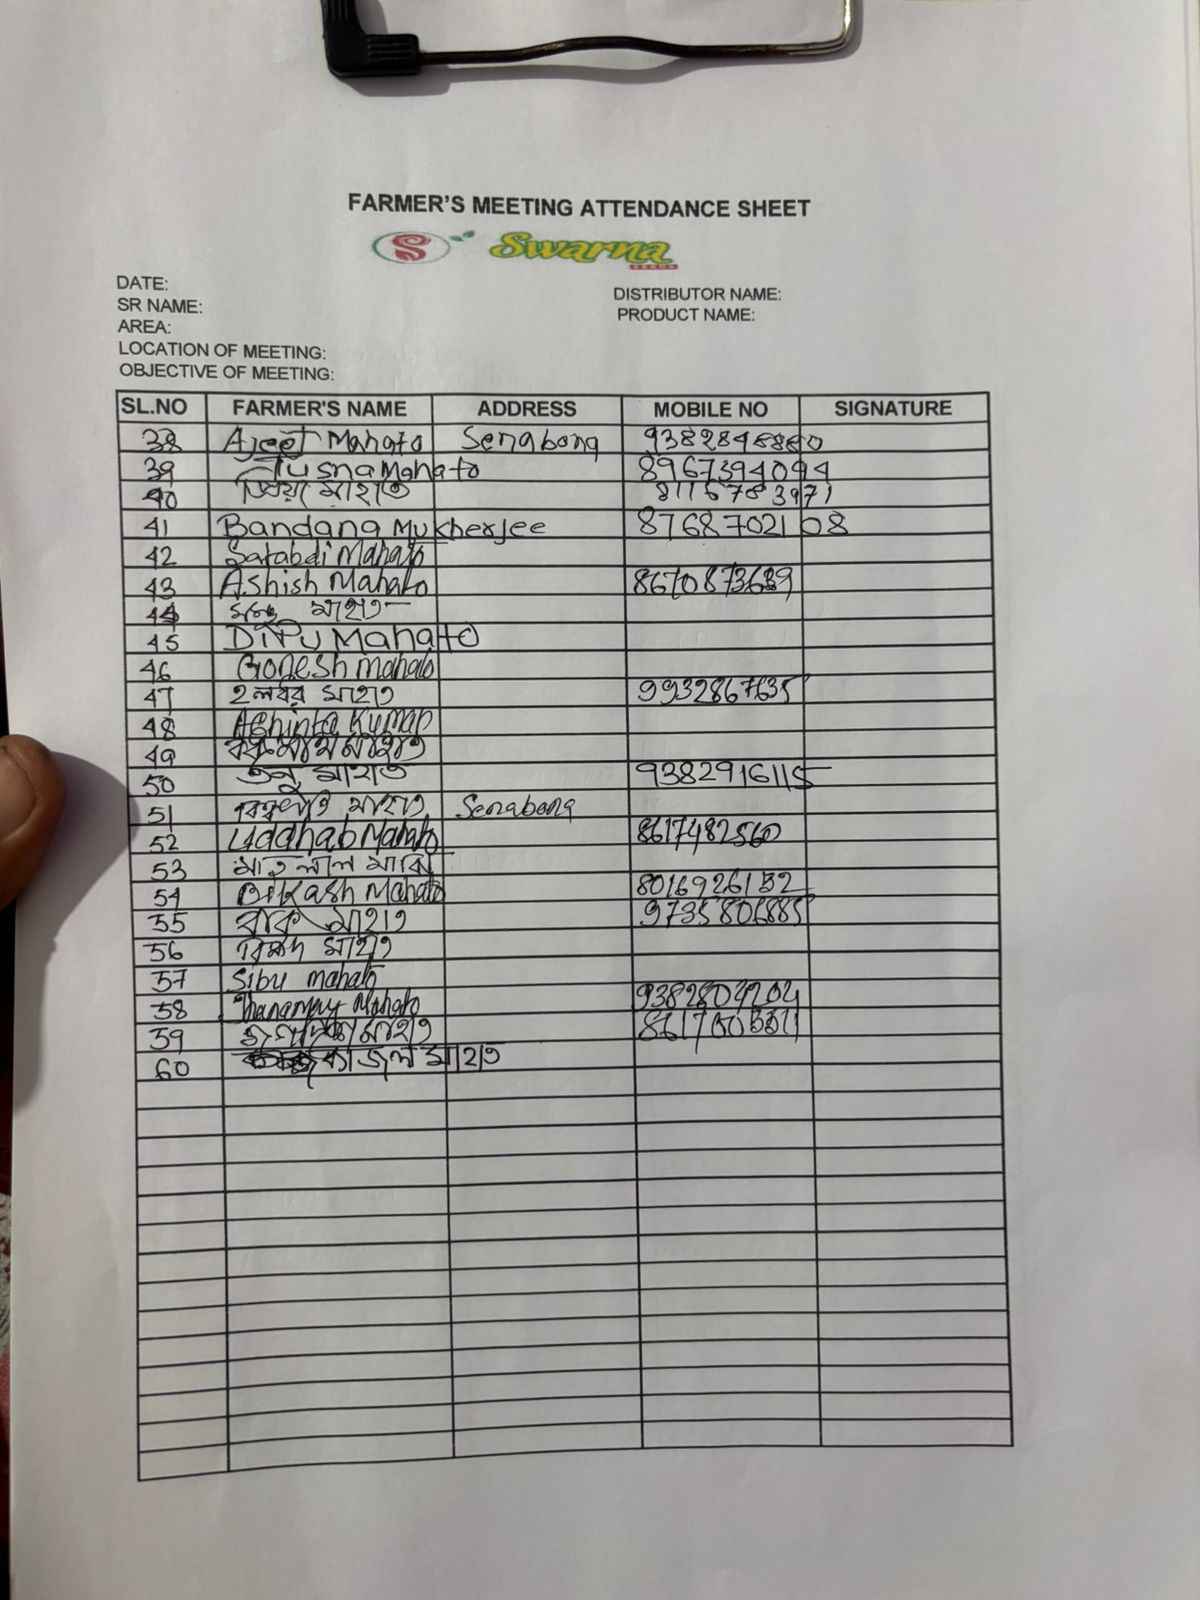 FARMER'S MEETING ATTENDANCE SHEET
S Swarna
SEEDS
DATE:
DISTRIBUTOR NAME:
SR NAME:
PRODUCT NAME:
AREA:
LOCATION OF MEETING:
OBJECTIVE OF MEETING:
SL.NO FARMER'S NAME ADDRESS MOBILE NO SIGNATURE
38 Ajeet Mahato Senabong 9382848880
39 Tusna Mahato 8967394094
40 প্রিয়া মাহাত 8116783971
41 Bandana Mukherjee 8768702108
42 Satabdi Mahato
43 Ashish Mahato 8670873639
44 মাহাত
45 Dipu Mahato
46 Gonesh Mahato
47 হলধর মাহাত 9932867635
48 Achinta Kumar
49 মাহাত
50 তনু মাহাত 9382916115
51 মাহাত Senabong
52 Uddhab Mahato 8617482560
53 মতিলাল মাঝি
54 Bikash Mahato 8016926132
55 মাহাত 9735806885
56 মাহাত
57 Sibu mahato
58 Mahato 9382804204
59 মাহাত
60 কাজল মাহাত